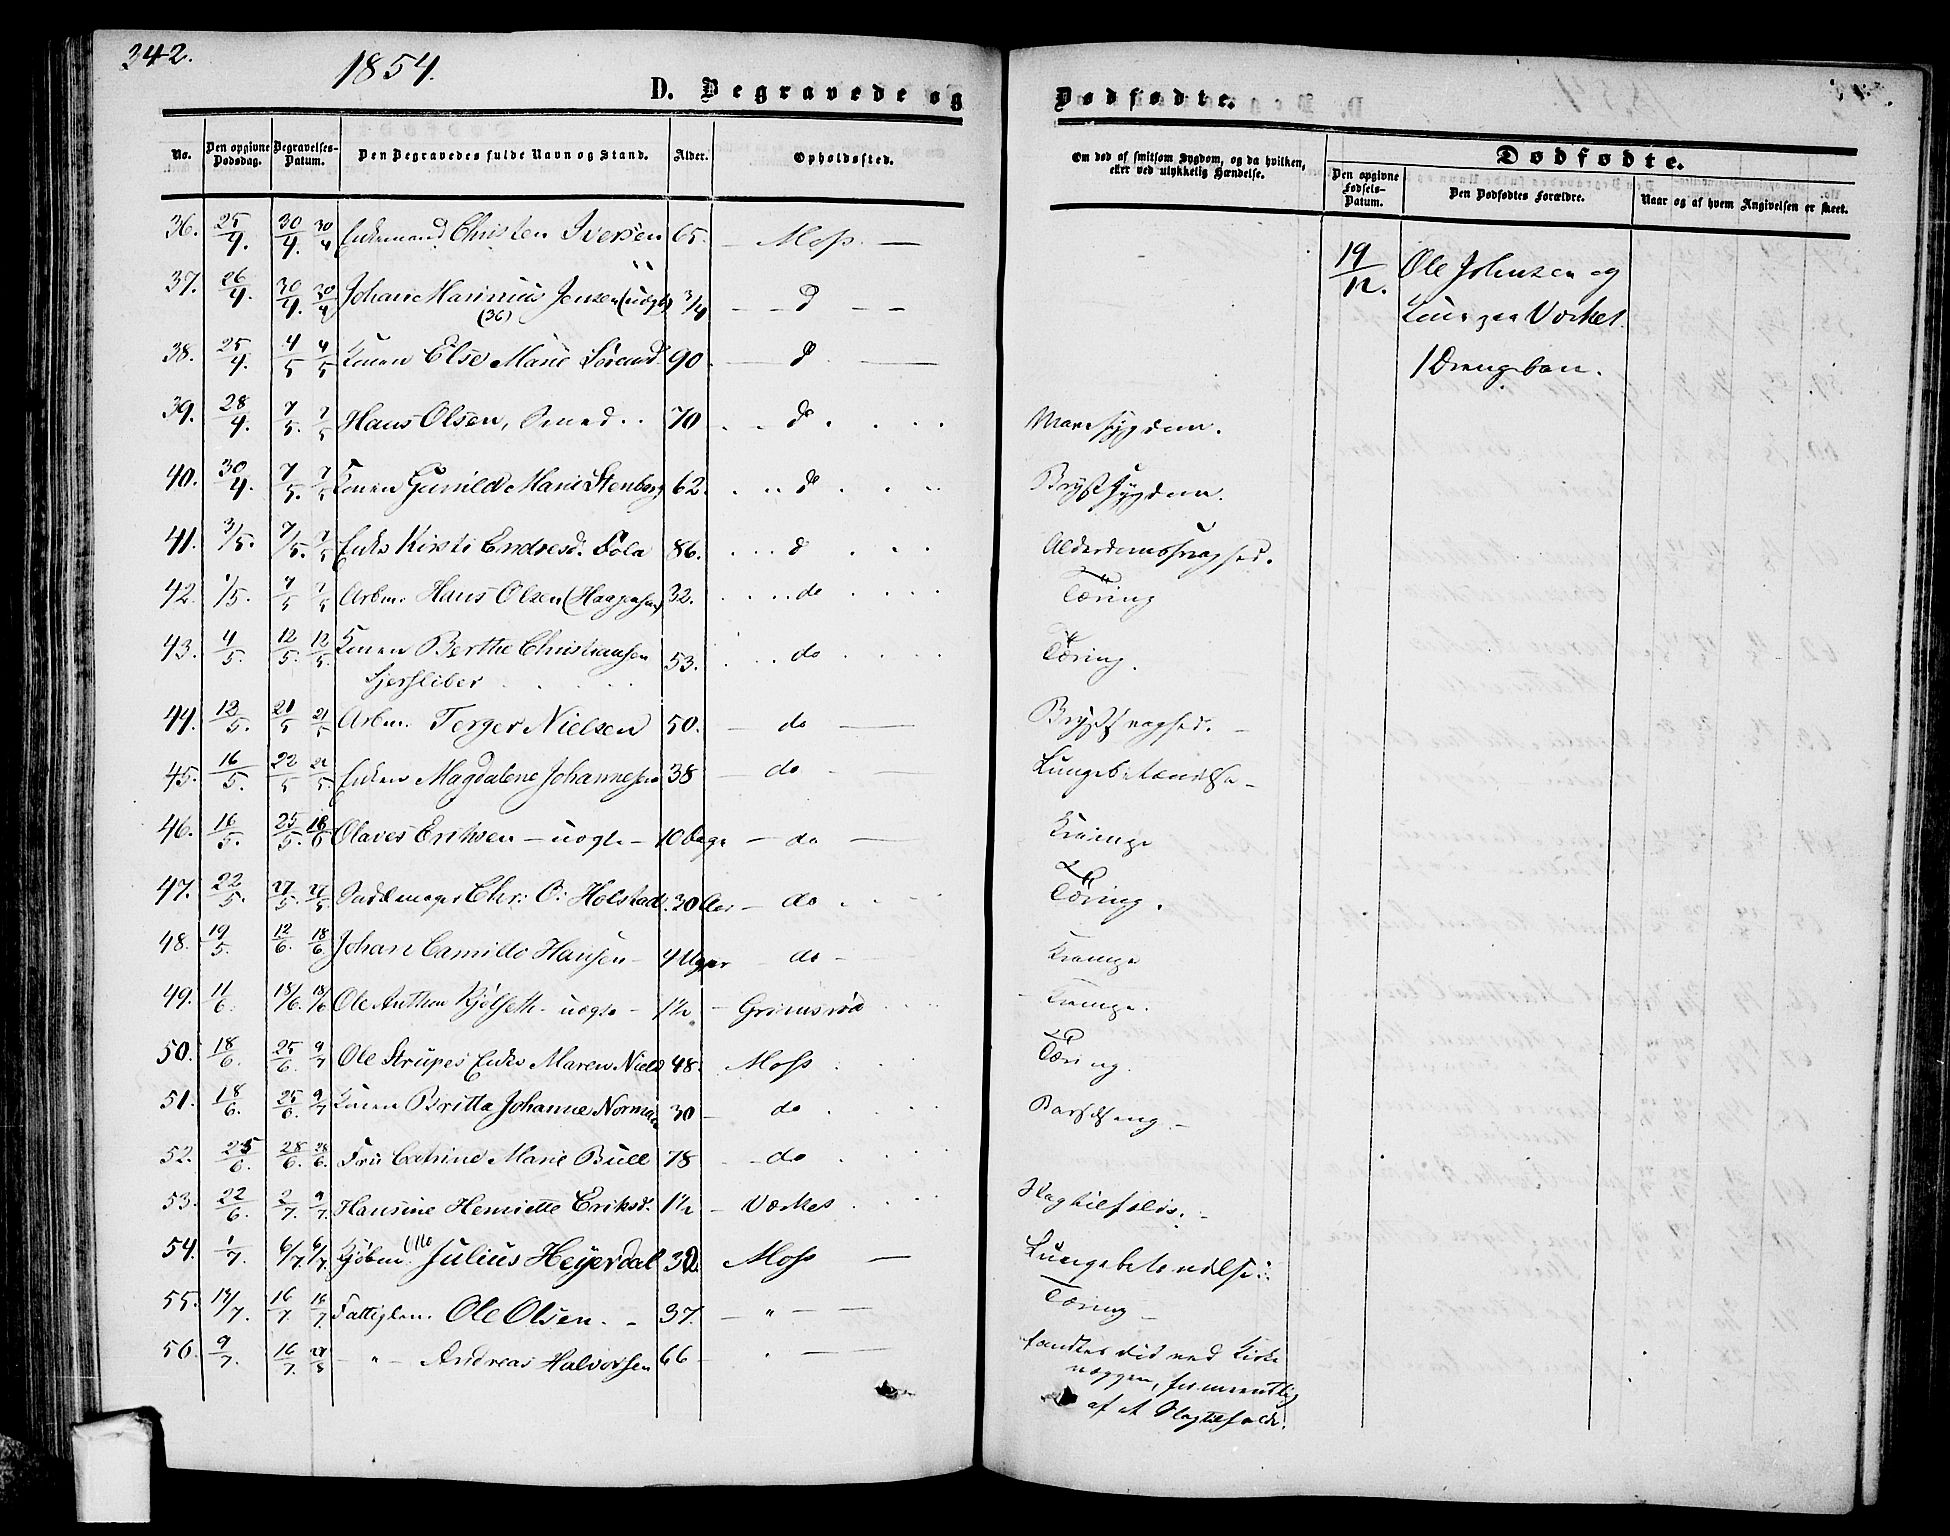 342.
1854.
D. Begravede og Dødfødte.
No. Den opgivne Dødsdag. Begravelses-Datum. Den Begravedes fulde Navn og Stand. Alder. Opholdssted. Om død af smitsom Sygdom, og da hvilken, eller ved ulykkelig Hændelse.
Dødfødte.
Den opgivne Fødsels-Datum. Den Dødfødtes Forældre. Naar og af hvem Angivelsen er skeet.
36. 25/4. 30/4. 30/4 Enkemand Christen Iversen 65. — Moss. —
37. 26/4. 30/4. 30/4 Johan Marinius Jensen (uægte) 3/4 — d — —
(36)
38. 25/4. 4/5 4/5 Konen Else Marie Sørensd. 90. — d —
39. 28/4. 7/5. 7/5 Hans Olsen, Smed . . 70 . . d . . . . Mavesygdom.
40. 30/4. 7/5. 7/5 Konen Gunild Marie Stenberg 62. . . . d . . . Brystsygdom.
41. 3/5. 7/5. 7/5 Enke Kirsti Endresd. Sola 86. . . . d . . . Alderdomssvaghed.
42. 1/5. 7/5 7/5 Arbm. Hans Olsen (Haagensen) 32. . . . . do . . . . Tæring
43. 4/5. 12/5. 12/5. Konen Berthe Christiansen 53. . . . do . . . . Tæring.
Sjersliber . . . .
44. 12/5. 21/5 21/5 Arbm. Terger Nielsen 50. — do — Brystsvaghed. —
45. 16/5. 22/5 21/5. Enken Magdalene Johannesen 38 — do — Lungebetændelse —
46. 16/5. 25/5. 18/6 Olaves Eriksen — uægte — 10 Dage — do — Krampe
47. 22/5. 27/5. Chr. O. Holstad 30 Aar — do . . . Tæring.
48. 19/5. 12/6. 18/6. Johan Camillo Hansen — 4 Uger — do — Krampe
49. 11/6. 18/6. 18/6 Ole Anthon Kjølseth — uægte — 1 1/2 — Grimsrød . . . — Krampe.
50. 18/6. 25/6. 9/7 Ole Strupes Enke Maren Nielsd 48. Moss . . Tæring.
51. 18/6. 25/6. 9/7 Konen Britta Johanne Norman 30 — do . . . . Barselseng —
52. 25/6. 28/6. 28/6. Fru Catrine Marie Bull 78 — do . . .
53. 22/6. 2/7. 9/7. Hansine Henriette Eriksd. 1 1/2 — Værket . . . . Slagtilfælde. —
54. 1/7. 6/7. 6/7. Kjøbm. Julius Heyerdal 32. Moss — Lungebetændelse.
55. 14/7. 16/7 16/7 Fattiglem. Ole Olsen. — 37. — " — — Tæring —
56. 9/7. 16/7. — " — Andreas Halvorsen 66 — . — — fandtes død ved Kirke
væggen, formeentlig
af et Slagtilfælde.
19/12. Ole Johnsen og
Kone paa Værket.
1 Drengebarn.